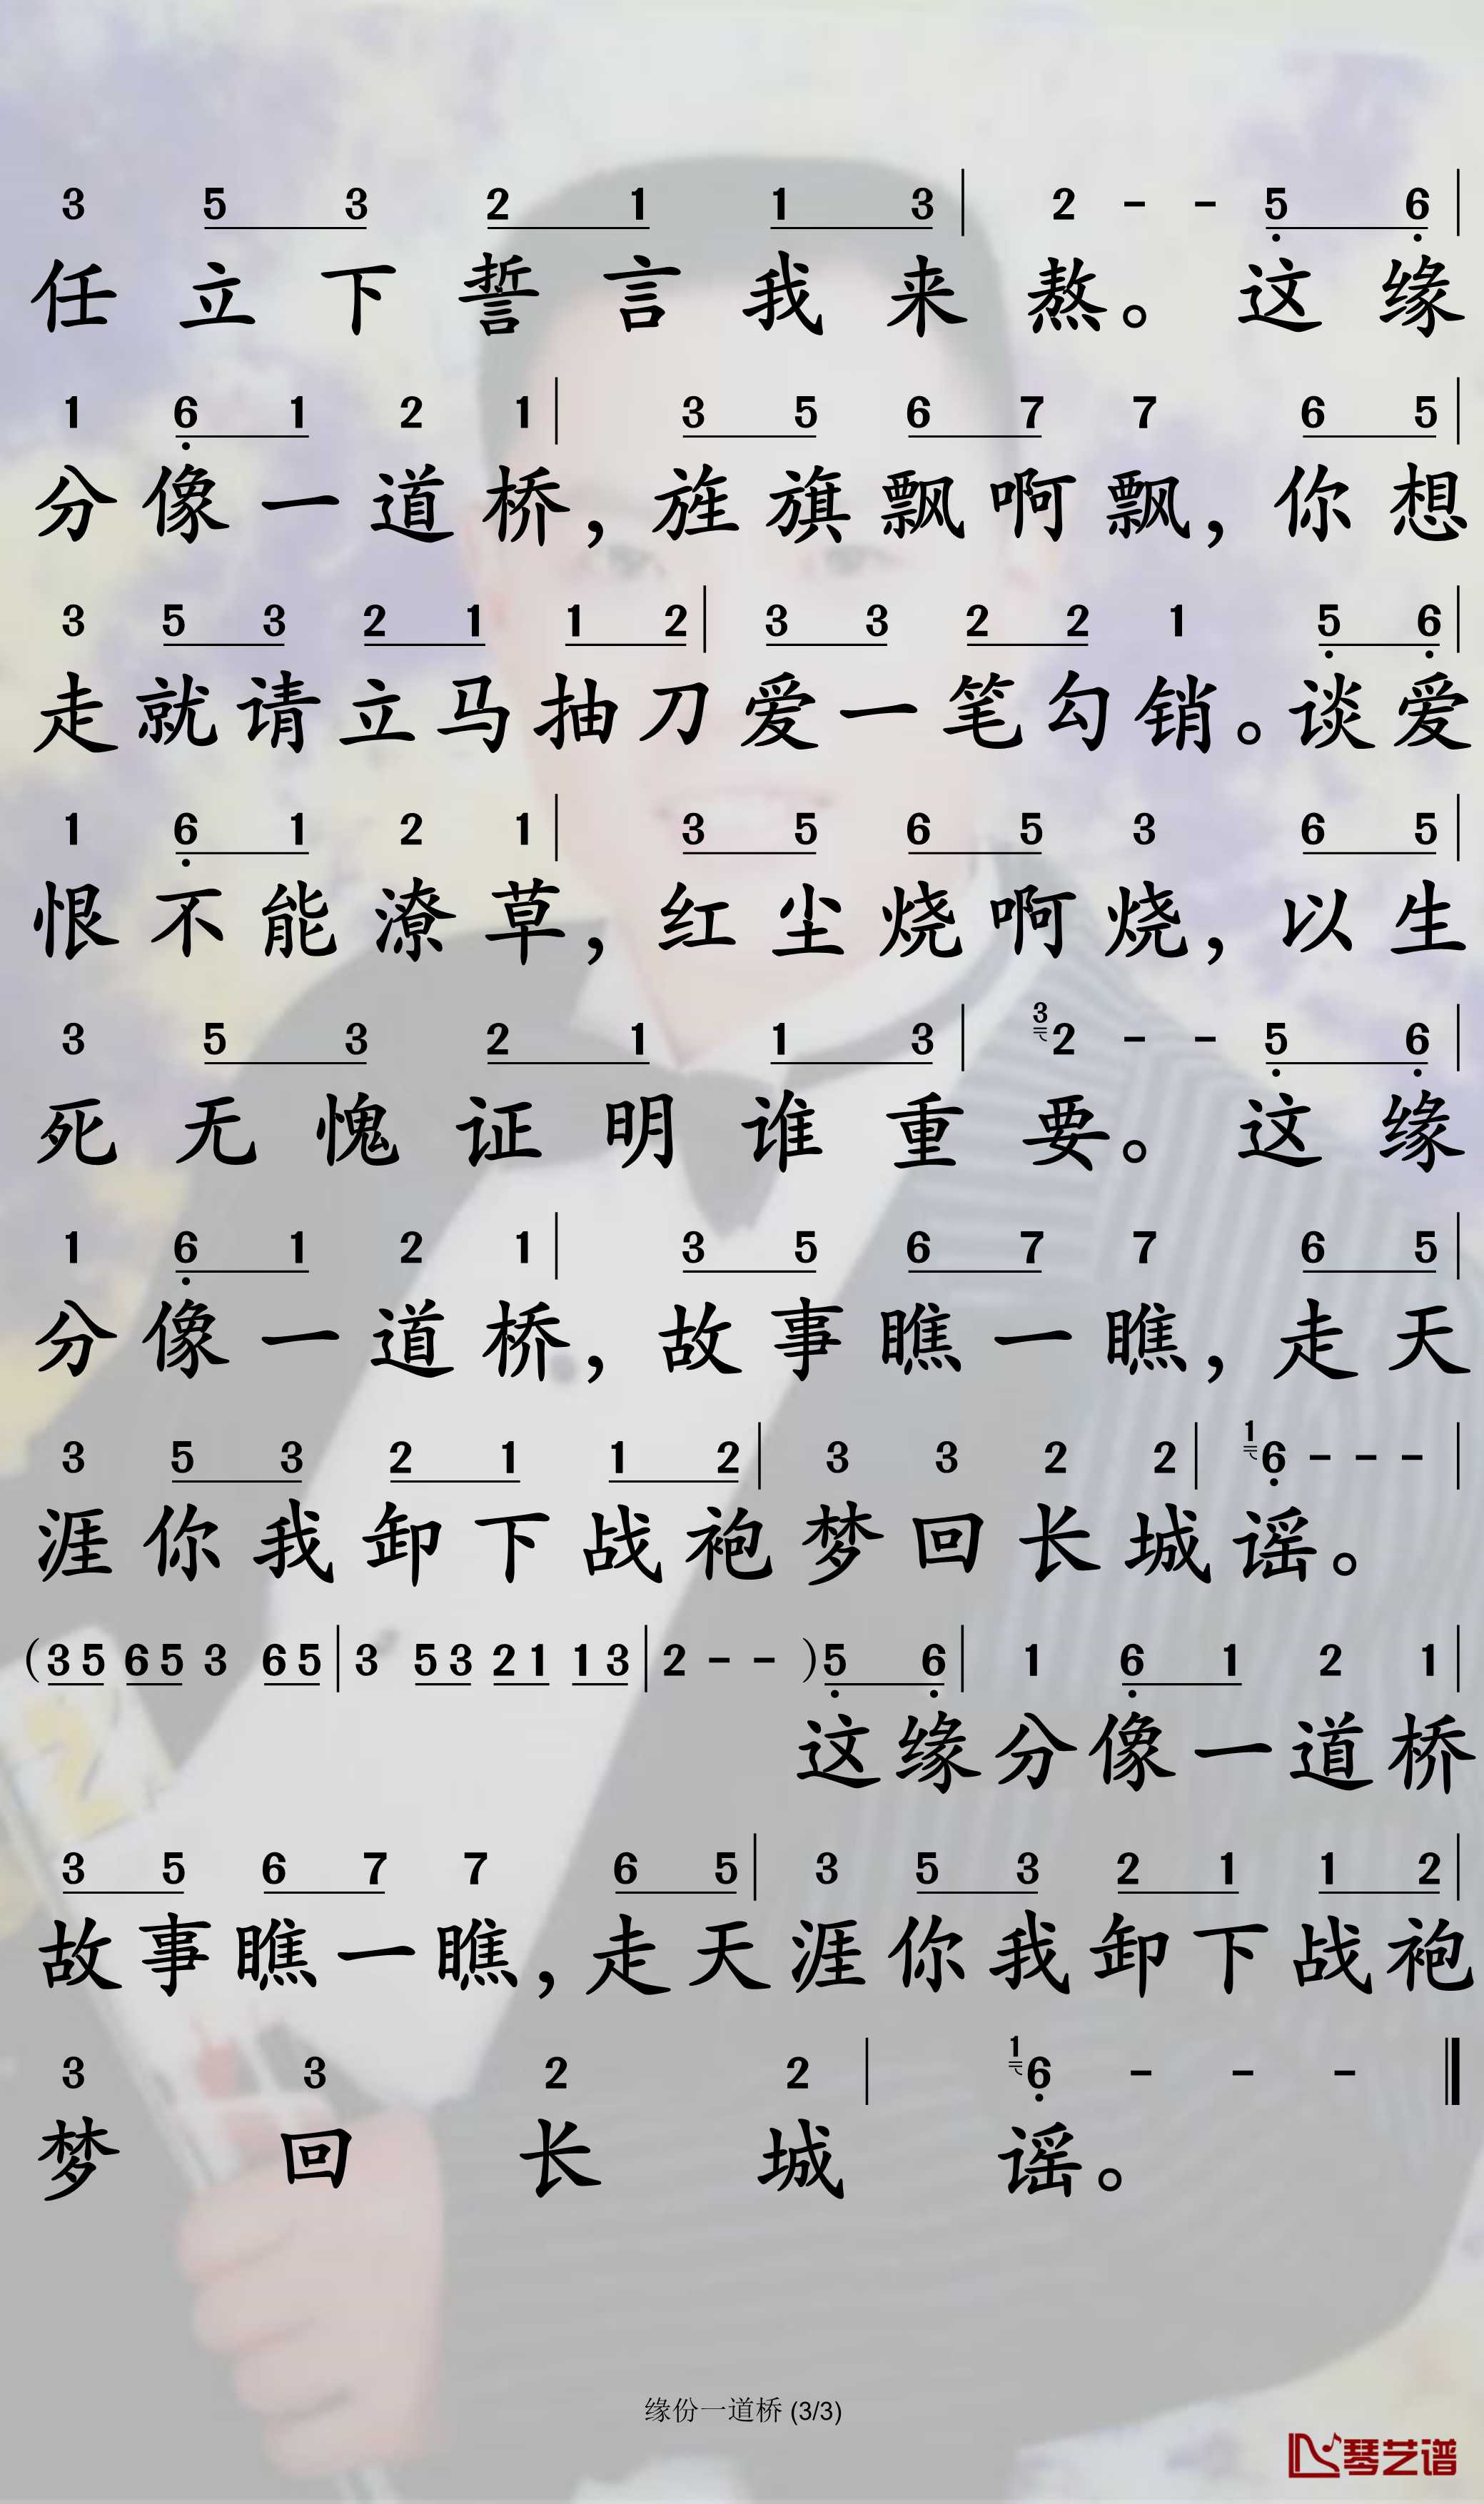 3 5 3 2 1 1 3 | 2 - - 5 6 |
任立下誓言我来熬。这缘
1 6 1 2 1 | 3 5 6 7 7 6 5 |
分像一道桥，旌旗飘啊飘，你想
3 5 3 2 1 1 2 | 3 3 2 2 1 5 6 |
走就请立马抽刀爱一笔勾销。谈爱
1 6 1 2 1 | 3 5 6 5 3 6 5 |
恨不能潦草，红尘烧啊烧，以生
3 5 3 2 1 1 3 | 3 2 - - 5 6 |
死无愧证明谁重要。这缘
1 6 1 2 1 | 3 5 6 7 7 6 5 |
分像一道桥，故事瞧一瞧，走天
3 5 3 2 1 1 2 | 3 3 2 2 | 1 6 - - - |
涯你我卸下战袍梦回长城谣。
(3 5 6 5 3 6 5 | 3 5 3 2 1 1 3 | 2 - - ) 5 6 | 1 6 1 2 1 |
这缘分像一道桥
3 5 6 7 7 6 5 | 3 5 3 2 1 1 2 |
故事瞧一瞧，走天涯你我卸下战袍
3 3 2 2 | 1 6 - - - ‖
梦回长城谣。
缘份一道桥 (3/3)
琴艺谱